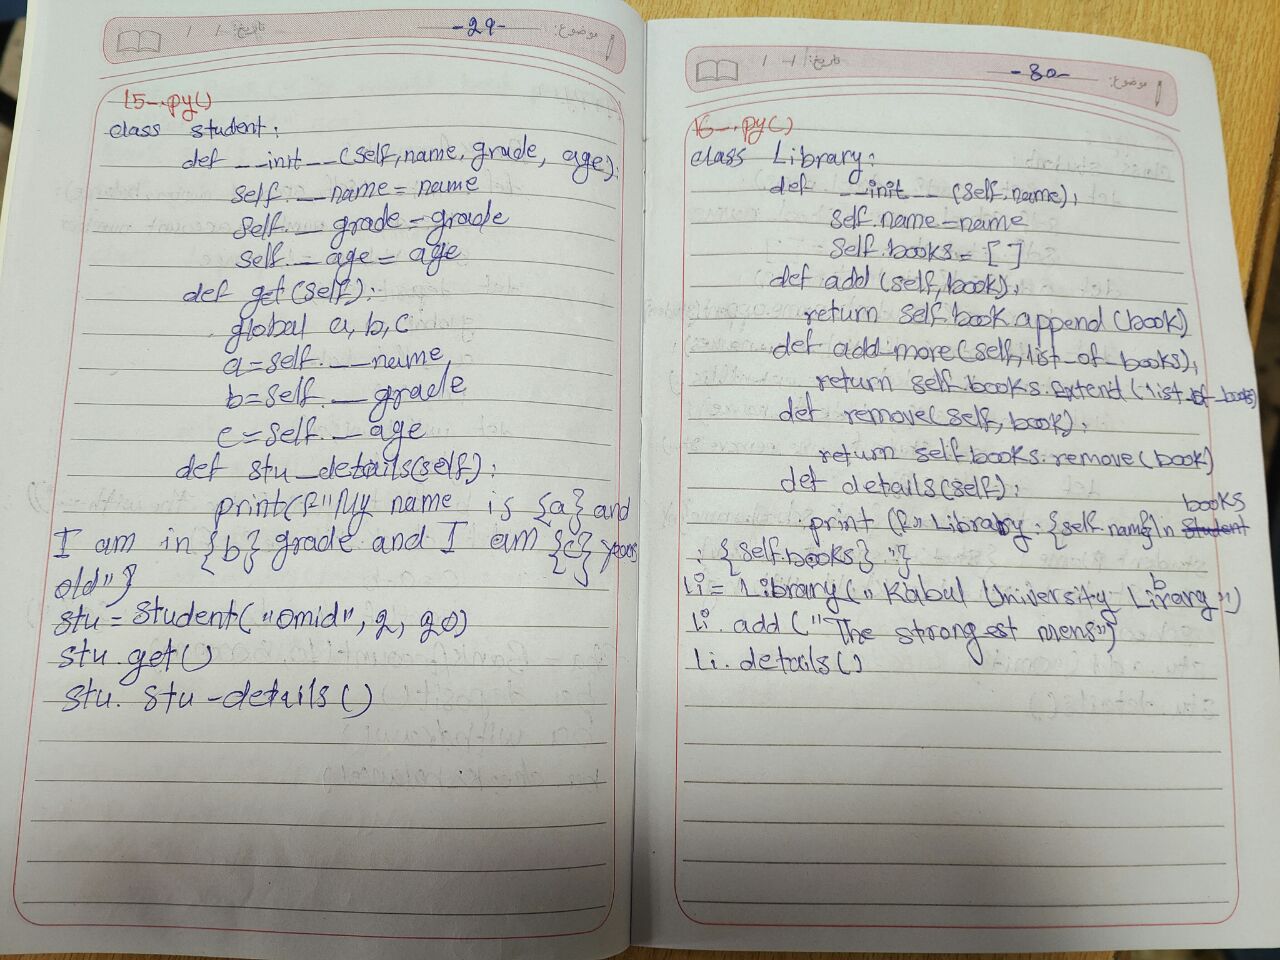 -29-
موضوع:
تاریخ: / /
15-.py()
class student:
def __init__(self, name, grade, age):
self.__name = name
self.__grade = grade
self.__age = age
def get(self):
global a, b, c
a=self.__name
b=self.__grade
c=self.__age
def stu_details(self):
print(f"My name is {a} and
I am in {b} grade and I am {c} years
old"}
stu = student("omid", 2, 20)
stu.get()
stu. stu-details()
-30-
موضوع:
تاریخ: / /
16-.py()
class Library:
def __init__ (self, name),
self.name=name
self.books = [ ]
def add (self, book),
return self.book append (book)
def add more (self, list_of_books),
return self.books.extend (list_of_books)
def remove(self, book),
return self.books.remove (book)
def details (self),
books
print (f" Library : {self.name}\n student
: {self.books} "}
Li = Library (" Kabul University Library ")
Li. add ("The strongest mens")
Li. details()